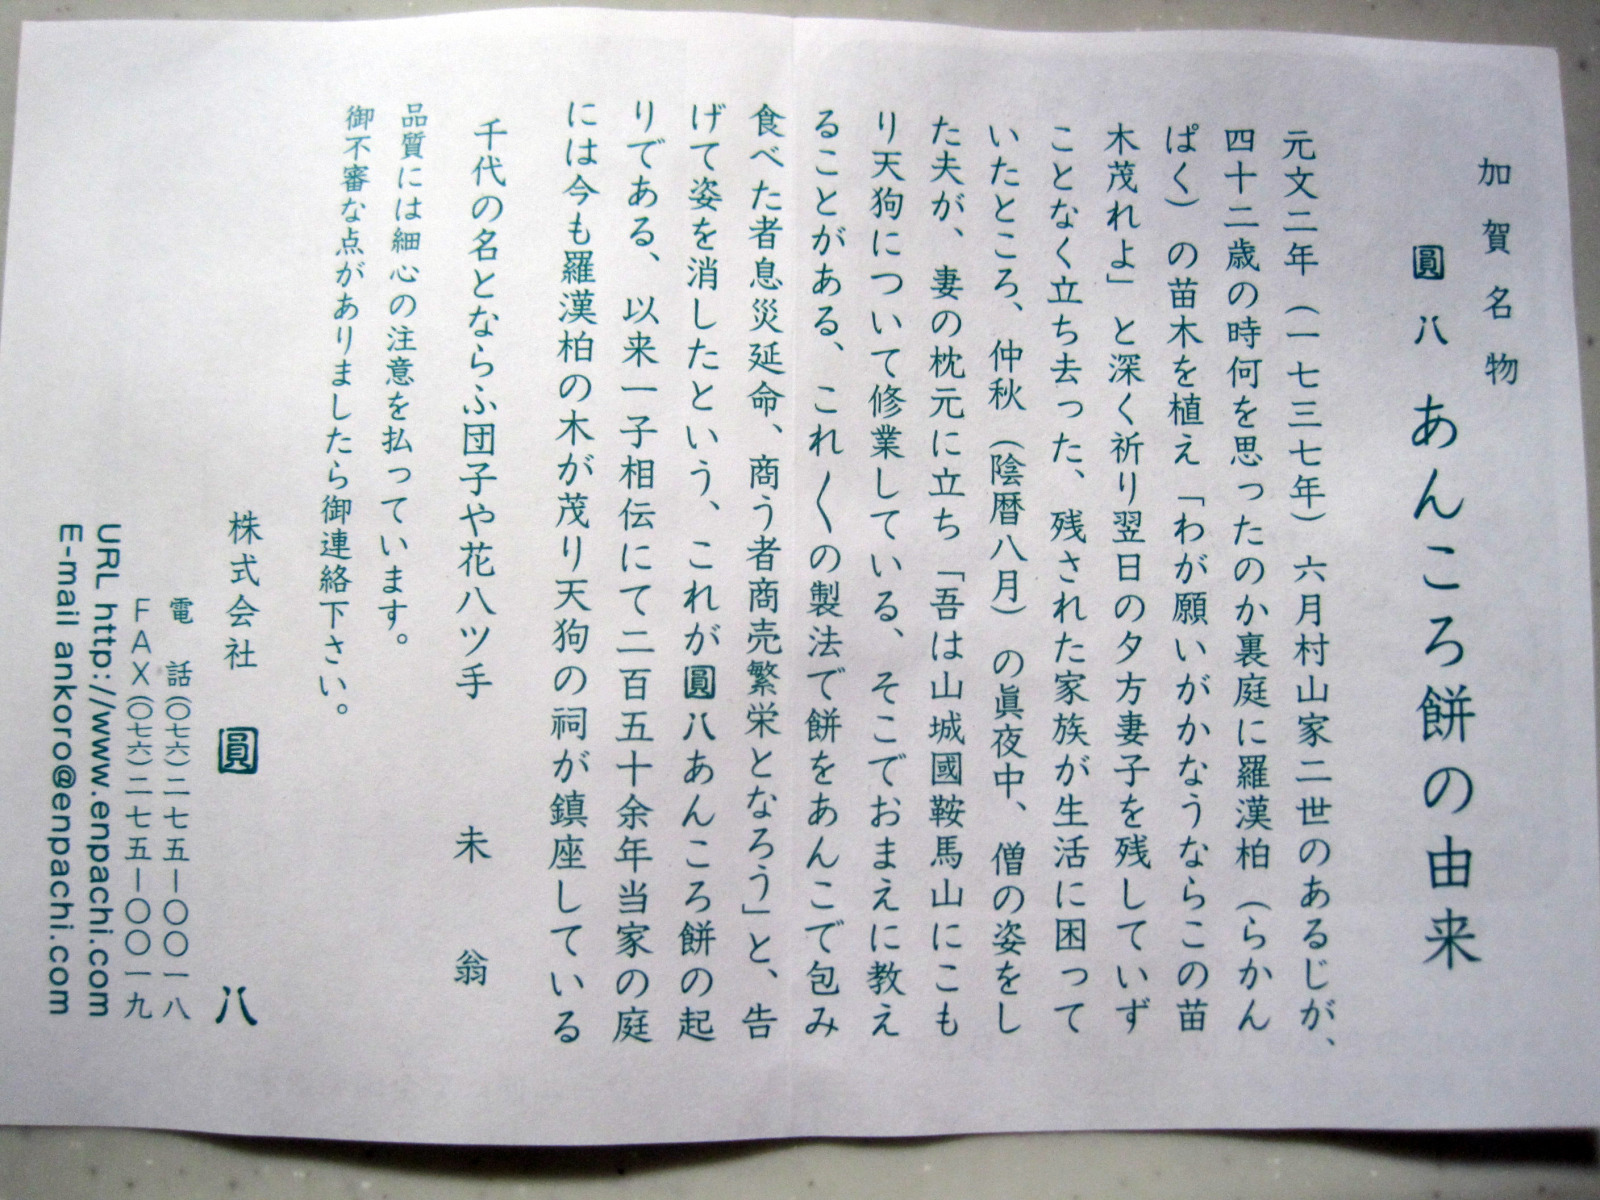 加賀名物
圓八 あんころ餅の由来
元文二年（一七三七年）六月村山家二世のあるじが、
四十二歳の時何を思ったのか裏庭に羅漢柏（らかん
ぱく）の苗木を植え「わが願いがかなうならこの苗
木茂れよ」と深く祈り翌日の夕方妻子を残していず
ことなく立ち去った、残された家族が生活に困って
いたところ、仲秋（陰暦八月）の眞夜中、僧の姿をし
た夫が、妻の枕元に立ち「吾は山城國鞍馬山にこも
り天狗について修業している、そこでおまえに教え
ることがある、これ〳〵の製法で餅をあんこで包み
食べた者息災延命、商う者商売繁栄となろう」と、告
げて姿を消したという、これが圓八あんころ餅の起
りである、以来一子相伝にて二百五十余年当家の庭
には今も羅漢柏の木が茂り天狗の祠が鎮座している
千代の名とならふ団子や花八ツ手 未翁
品質には細心の注意を払っています。
御不審な点がありましたら御連絡下さい。
株式会社 圓八
電話(〇七六)二七五―〇〇一八
ＦＡＸ(〇七六)二七五―〇〇一九
URL http://www.enpachi.com
E-mail ankoro@enpachi.com